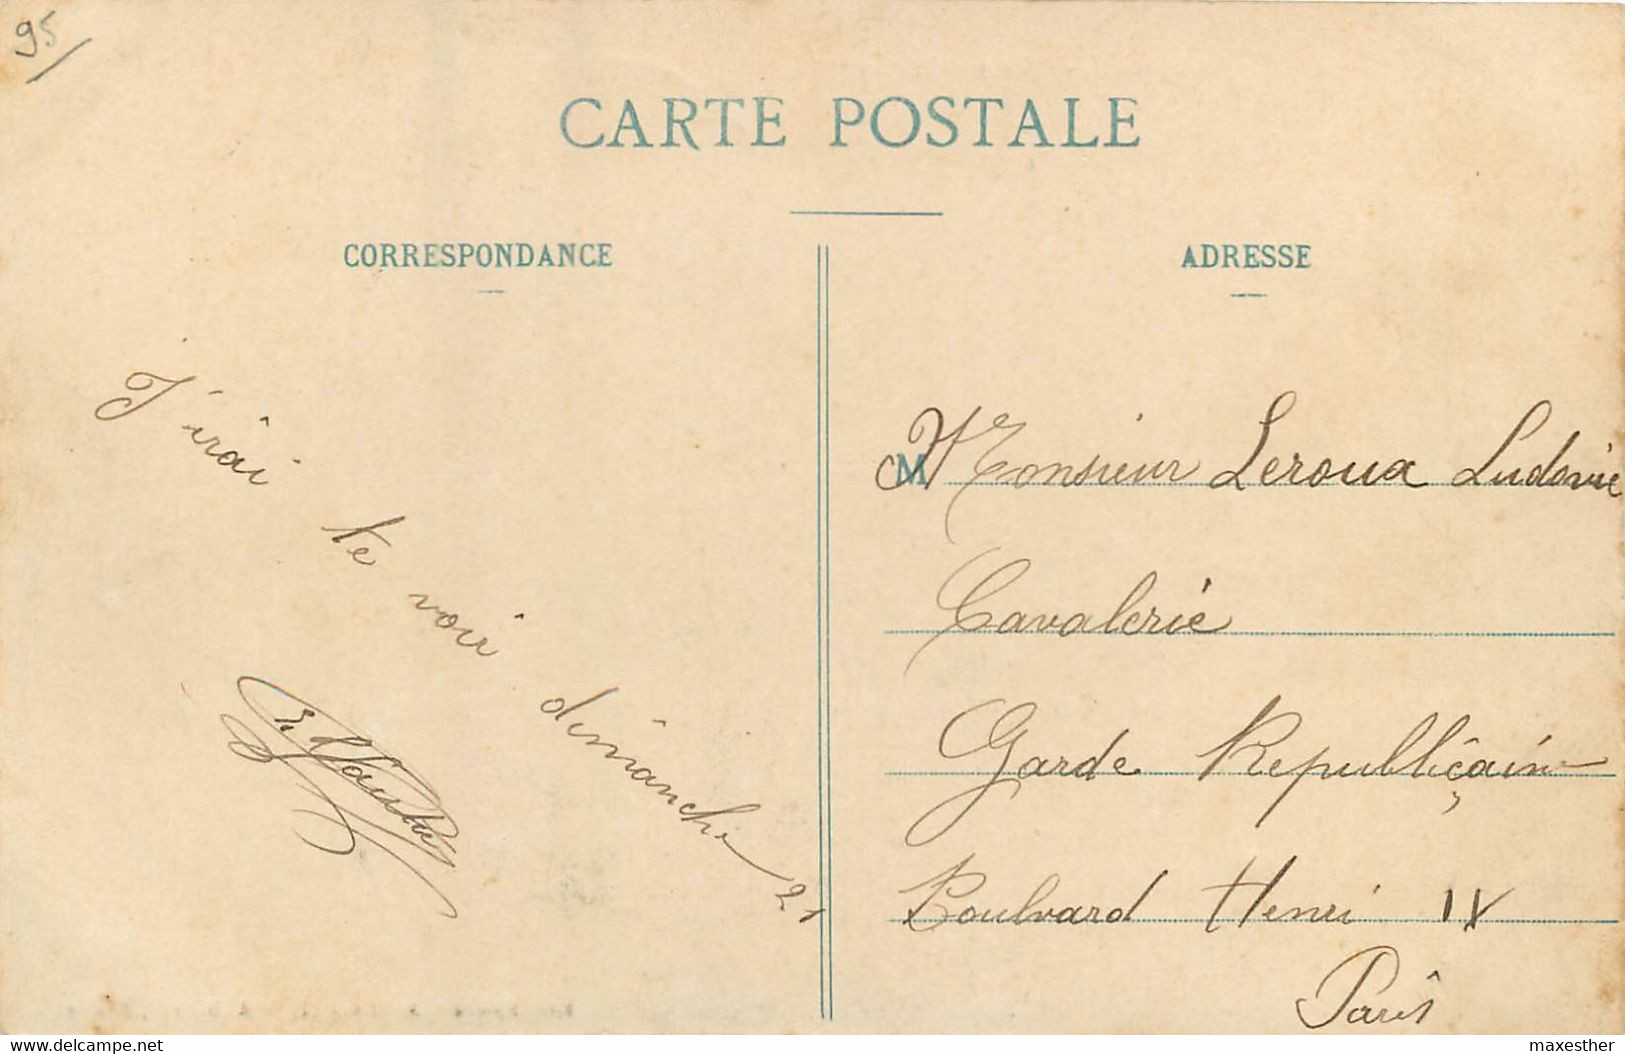 95/
CARTE POSTALE
CORRESPONDANCE
J'irai te voir dimanche 21
ADRESSE
M Monsieur Leroux Ludovic
Cavalerie
Garde Republiçain
Boulvard Henri IV
Paris
maxesther